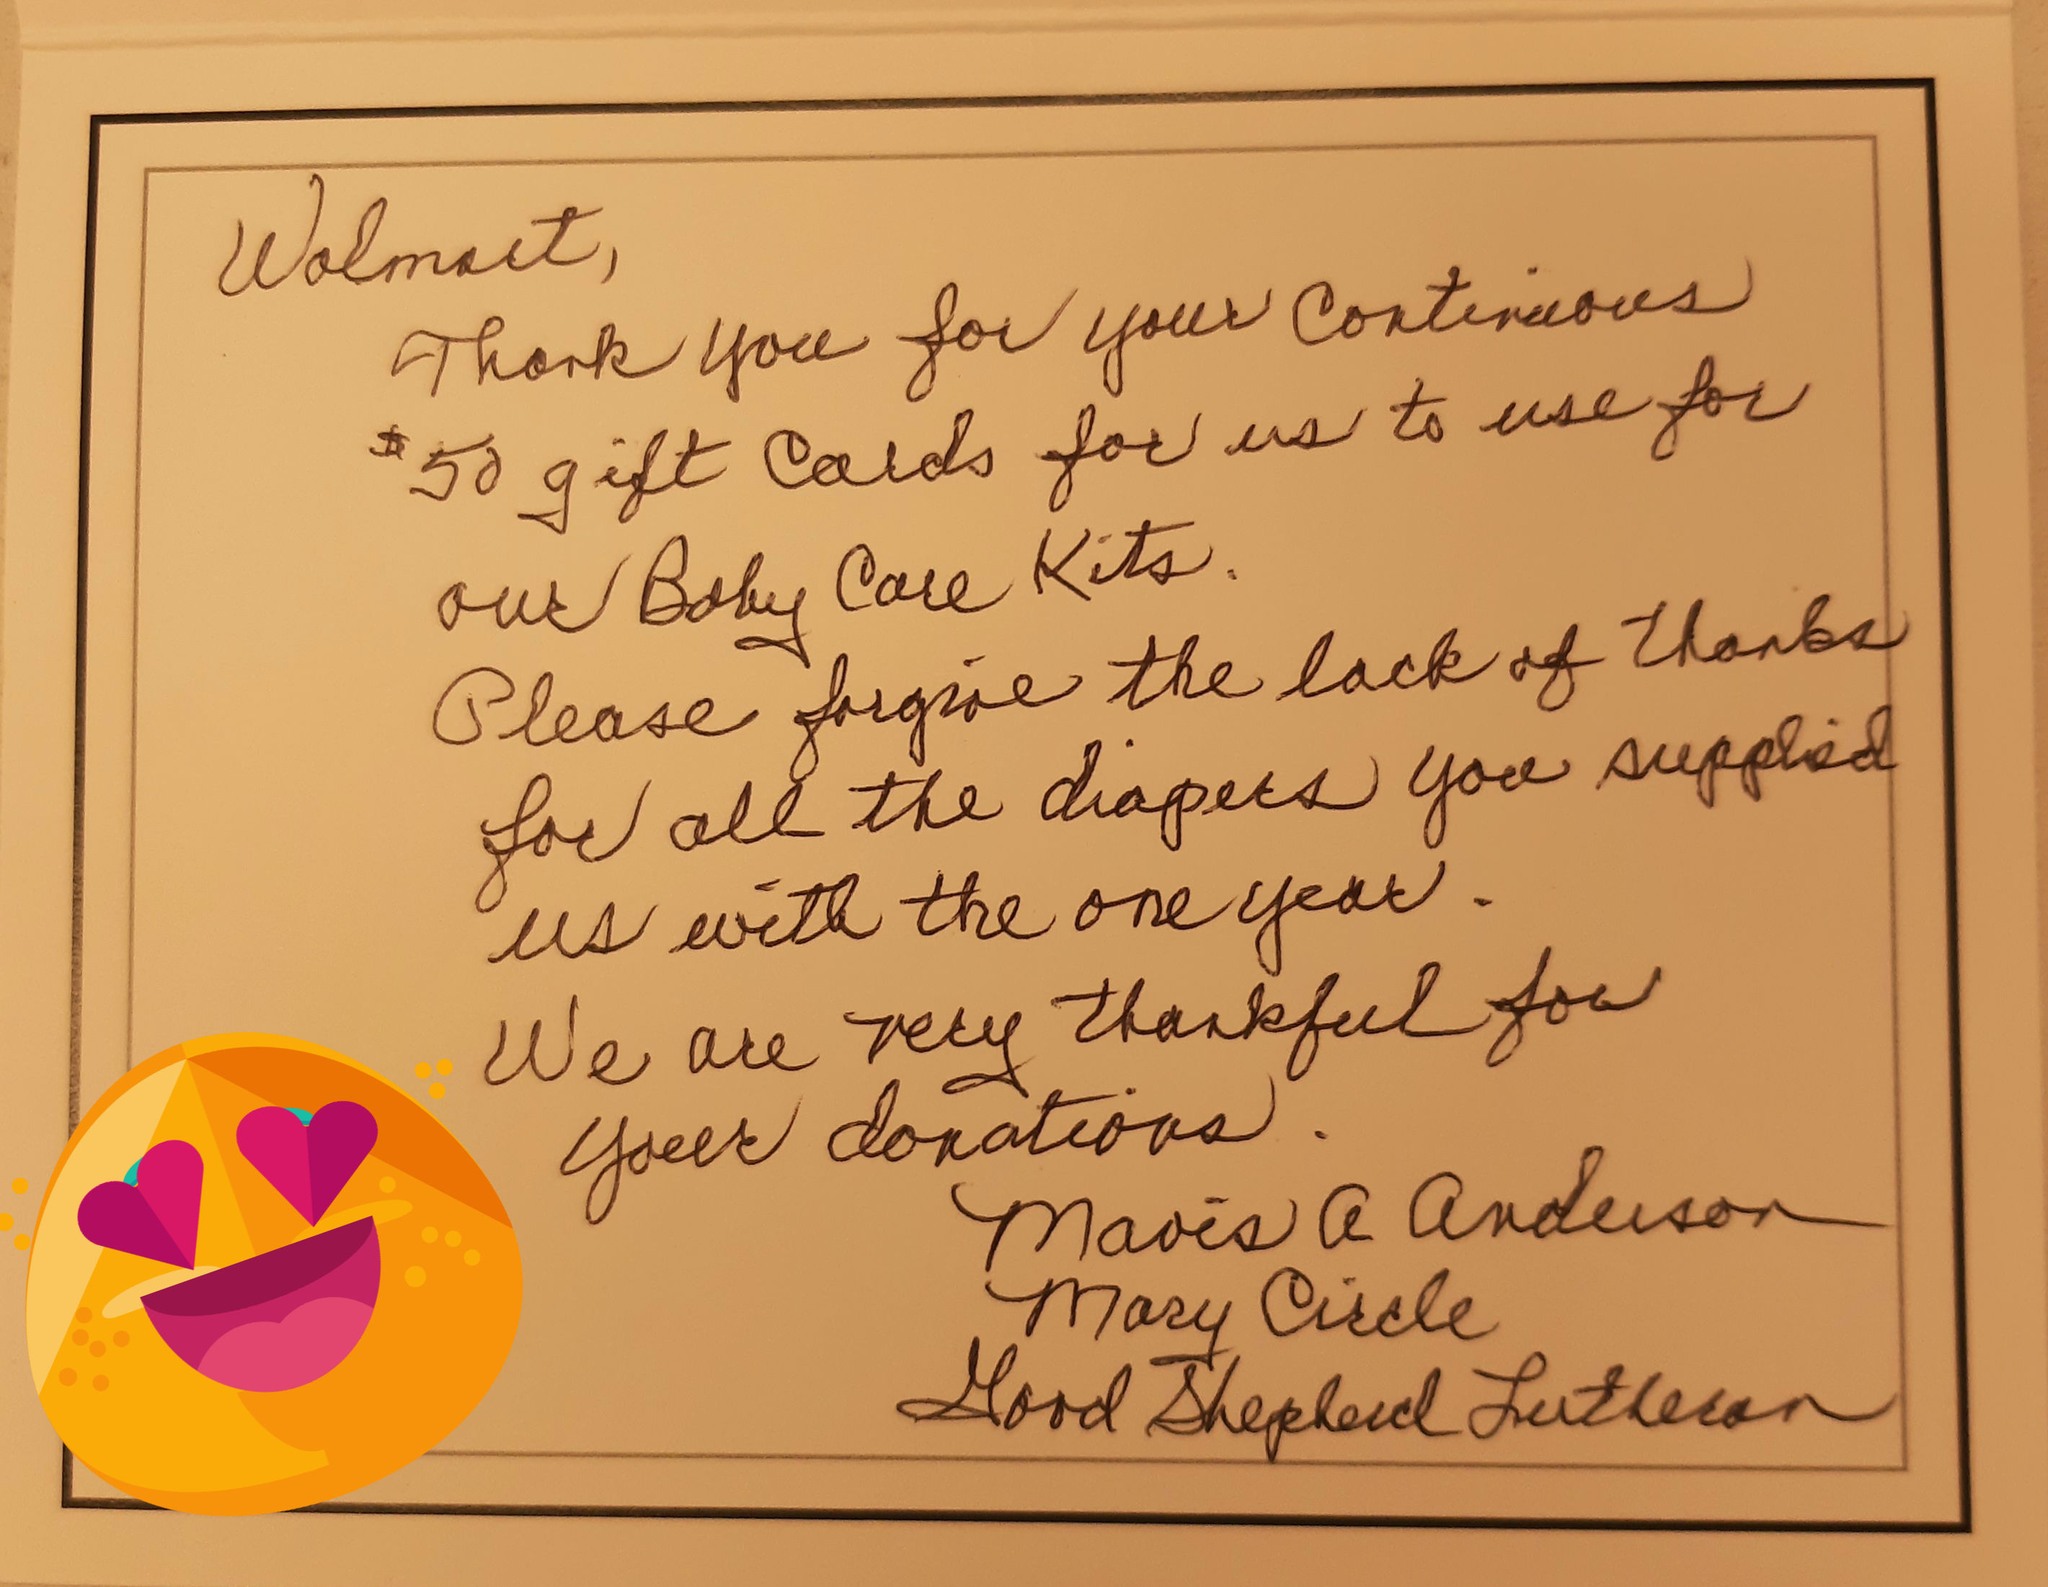 Walmart,
Thank you for your Continuous
$50 gift Cards for us to use for
our Baby Care Kits.
Please forgive the lack of thanks
for all the diapers you supplied
us with the one year.
We are very thankful for
your donations.
Mavis A Anderson
Mary Circle
Good Shepherd Lutheran